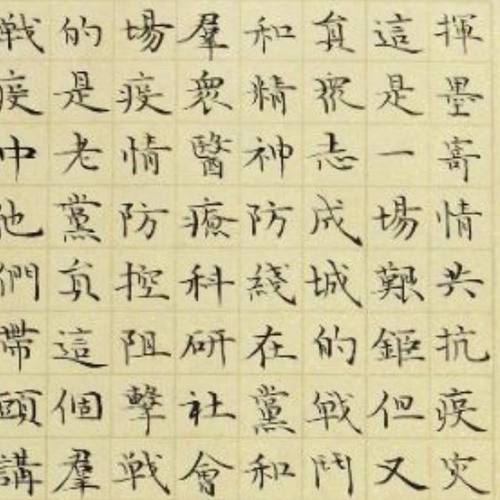 揮墨寄情共抗疫災
這是一場艱鉅但又
員衆志成城的戰鬥
和精神防綫在黨和
羣衆醫療科研社會
場疫情防控阻擊戰
的是老黨員這個羣
戰疫中他們帶頭講